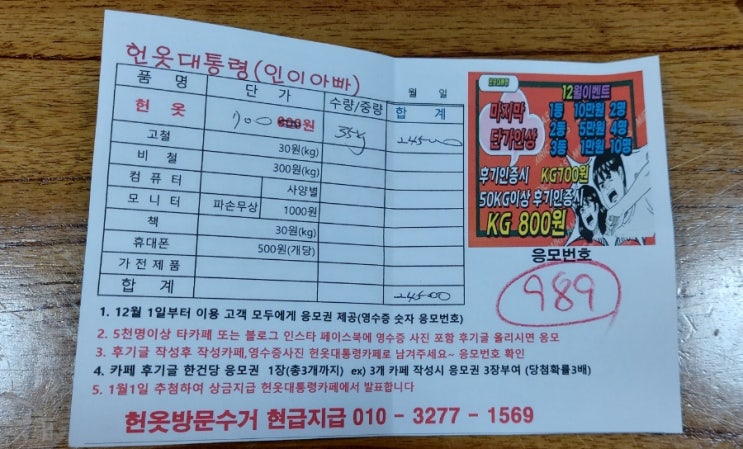 헌옷대통령(인이아빠)
월 일
품 명 단 가 수량/중량 합 계
헌 옷 700 600원 35kg 24500
고철 30원(kg)
비 철 300원(kg)
컴 퓨 터 사양별
모 니 터 파손무상 1000원
책 30원(kg)
휴대폰 500원(개당)
가 전 제 품
합 계 24500
12월이벤트
마지막 단가인상
1등 10만원 2명
2등 5만원 4명
3등 1만원 10명
후기인증시 KG700원
50KG이상 후기인증시
KG 800원
응모번호
989
1. 12월 1일부터 이용 고객 모두에게 응모권 제공(영수증 숫자 응모번호)
2. 5천명이상 타카페 또는 블로그 인스타 페이스북에 영수증 사진 포함 후기글 올리시면 응모
3. 후기글 작성후 작성카페,영수증사진 헌옷대통령카페로 남겨주세요~ 응모번호 확인
4. 카페 후기글 한건당 응모권 1장(총3개까지) ex) 3개 카페 작성시 응모권 3장부여 (당첨확률3배)
5. 1월1일 추첨하여 상금지급 헌옷대통령카페에서 발표합니다
헌옷방문수거 현급지급 010 - 3277 - 1569